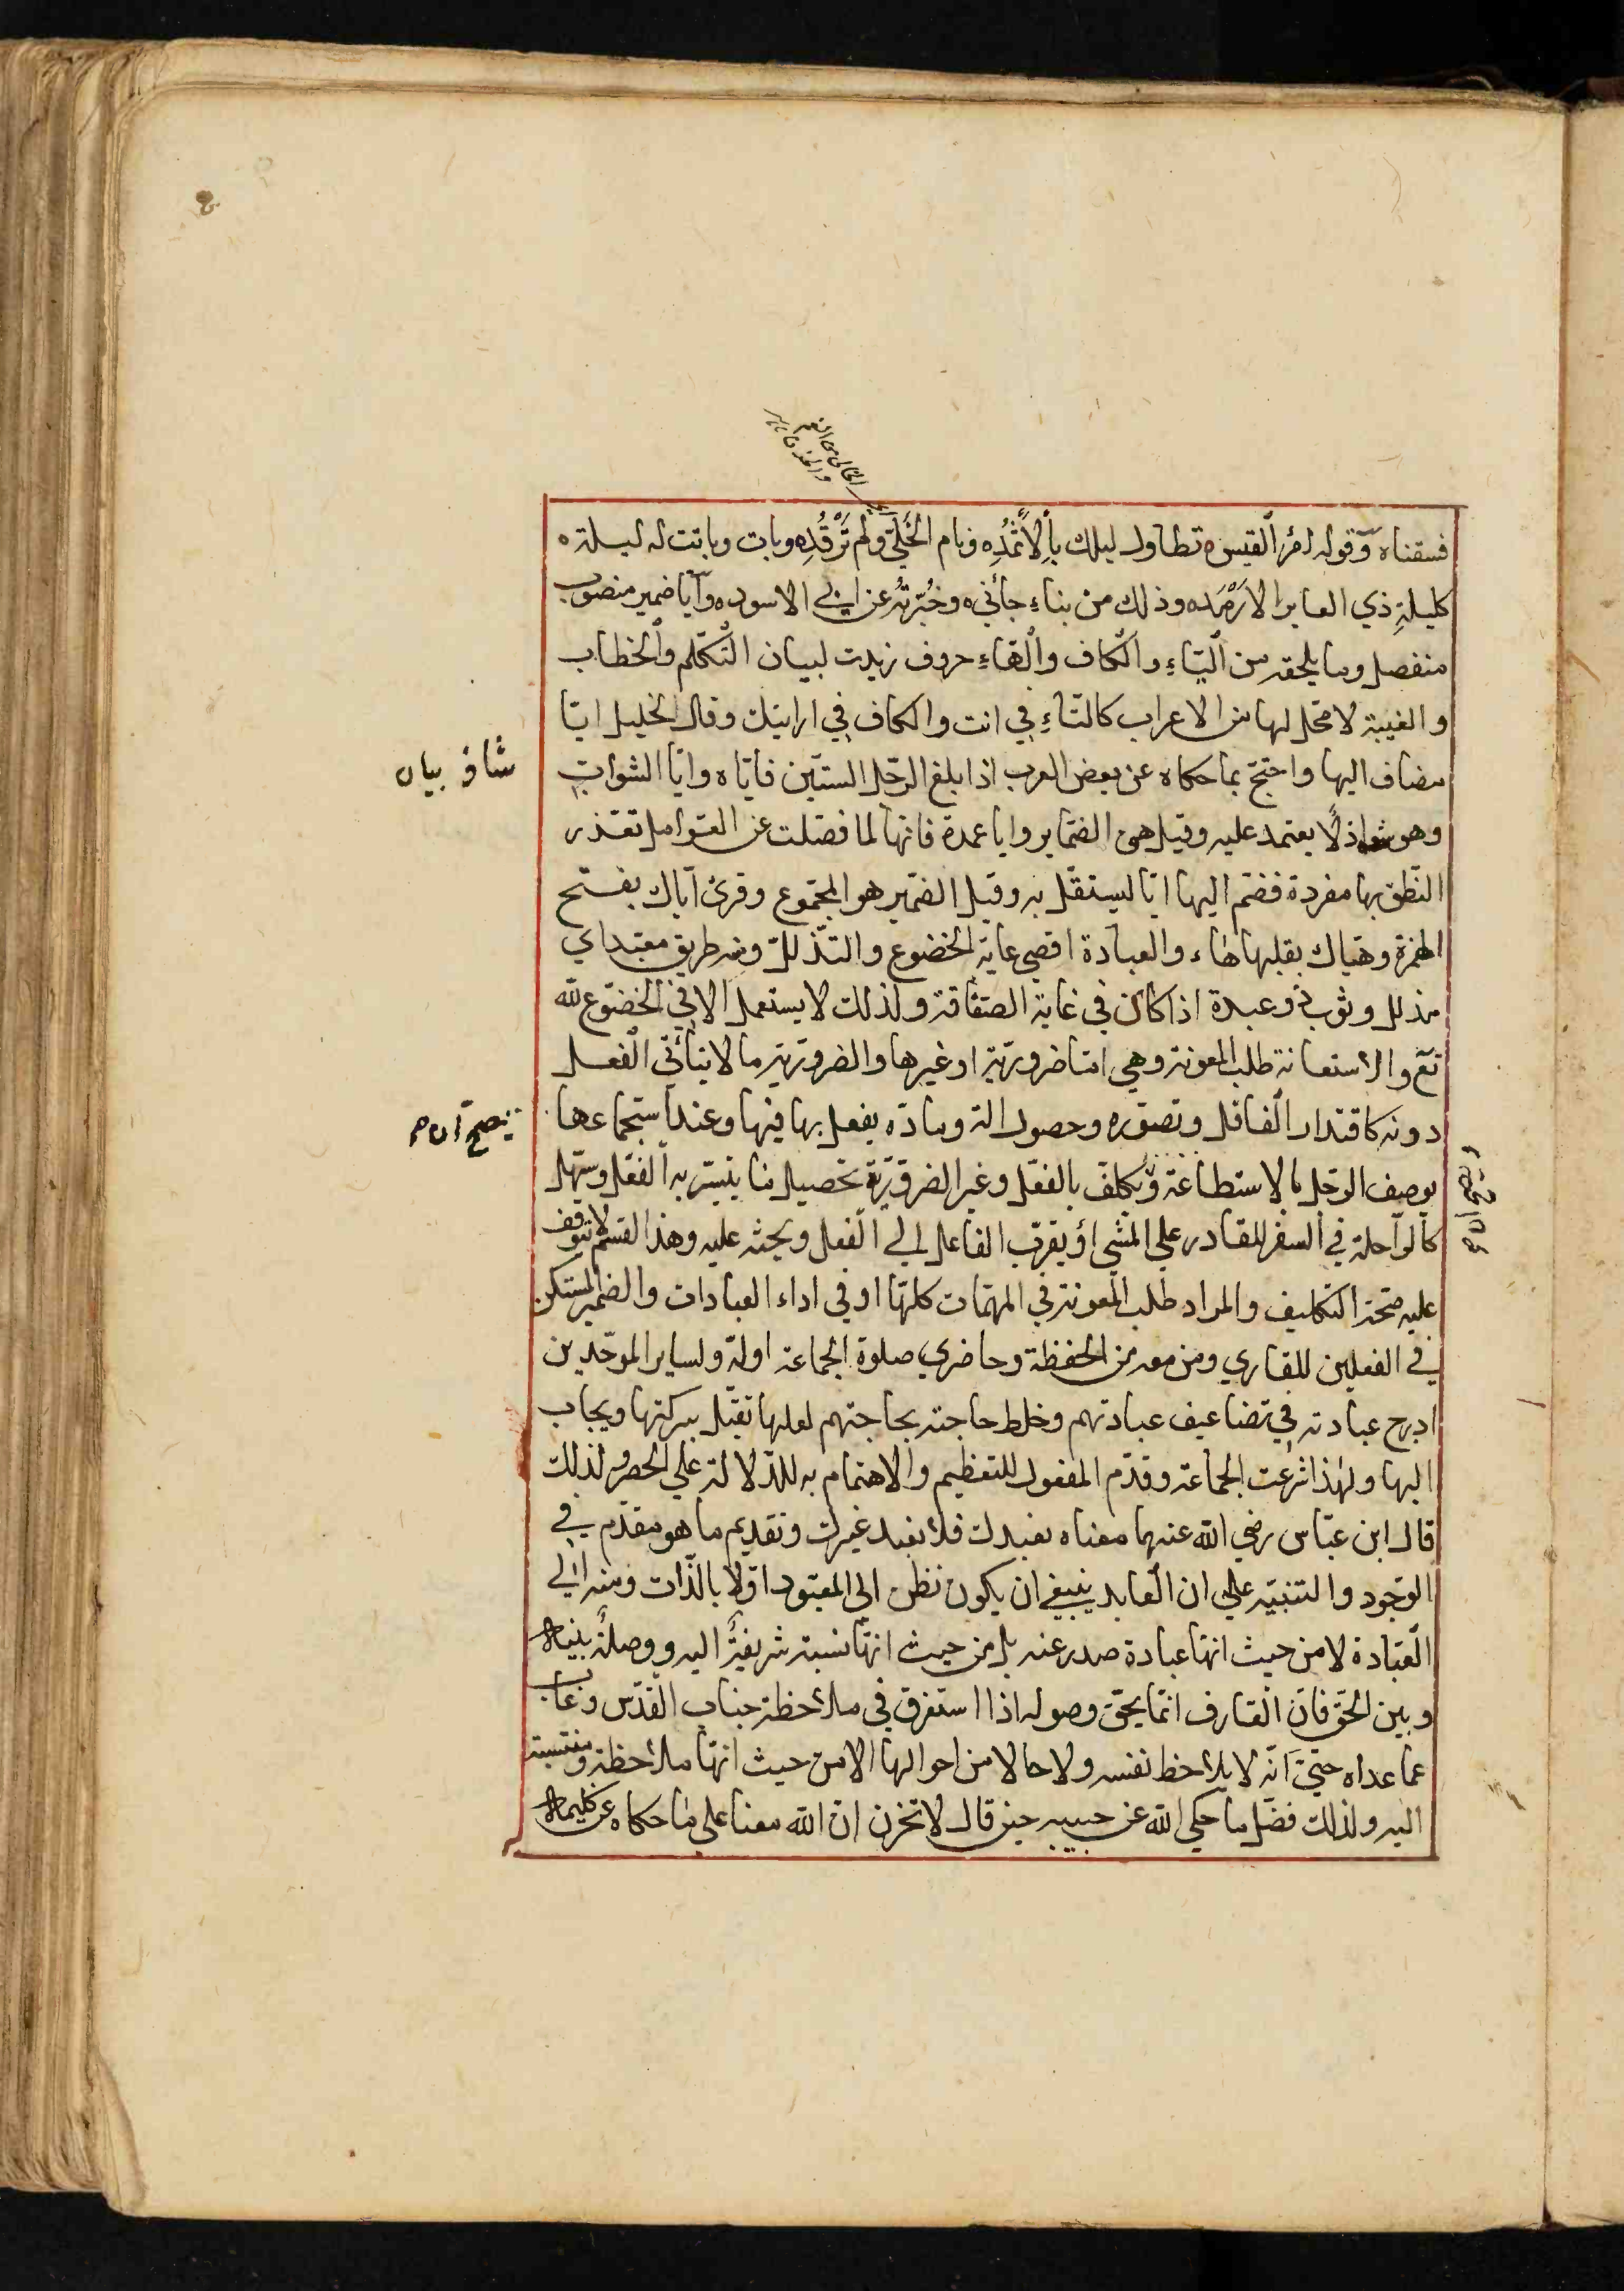 فسقناه وقوله امرء القيس ه تطاول ليلك بالاثمد ه ونام الخلي ولم ترقد ه وبات وباتت له ليلة ه
كليلة ذي العاير الارمد ه وذلك من نباء جاءني ه وخبرته عن ابي الاسود ه وايا ضمير منصوب
منفصل وما يلحقه من الياء والكاف والهاء حروف زيدت لبيان التكلم والخطاب
والغيبة لا محل لها من الاعراب كالتاء في انت والكاف في ارايتك وقال الخليل ايا
مضاف اليها واحتج بما حكاه عن بعض العرب اذا بلغ الرجل الستين فاياه وايا الشواب
وهو شاذ لا يعتمد عليه وقيل هي الضماير وايا عمدة فانها لما فصلت عن العوامل تعذر
النطق بها مفردة فضم اليها ايا ليستقل به وقيل الضمير هو المجموع وقرئ اياك بفتح
الهمزة وهياك بقلبها هاء والعبادة اقصى غاية الخضوع والتذلل ومنه طريق معبد اي
مذلل وثوب ذو عبدة اذا كان في غاية الصفاقة ولذلك لا يستعمل الا في الخضوع لله
تع والاستعانة طلب المعونة وهي اما ضرورية او غيرها والضرورية ما لا يتأتى الفعل
دونه كاقتدار الفاعل وتصوره وحصول الة ومادة يفعل بها فيها وعند استجماعها
يوصف الرجل بالاستطاعة ويكلف بالفعل وغير الضرورية تحصيل ما يتيسر به الفعل ويسهل
كالراحلة في السفر للقادر على المشي او يقرب الفاعل الى الفعل ويحثه عليه وهذا القسم لا يتوقف
عليه صحة التكليف والمراد طلب المعونة في المهمات كلها او في اداء العبادات والضمير المستكن
في الفعلين للقاري ومن معه من الحفظة وحاضري صلوة الجماعة اوله ولساير الموحدين
ادرج عبادته في تضاعيف عبادتهم وخلط حاجته بحاجتهم لعلها تقبل ببركتها ويجاب
اليها ولهذا شرعت الجماعة وقدم المفعول للتعظيم والاهتمام به للدلالة على الحصر ولذلك
قال ابن عباس رضي الله عنهما معناه نعبدك فلا نعبد غيرك وتقديم ما هو مقدم في
الوجود والتنبيه على ان العابد ينبغي ان يكون نظره الى المعبود اولا بالذات ومنه الى
العبادة لا من حيث انها عبادة صدر عنه بل من حيث انها نسبة شريفة اليه ووصلة بينه
وبين الحق فان العارف انما يحق وصوله اذا استغرق في ملاحظة جناب القدس وغاب
عما عداه حتى انه لا يلاحظ نفسه ولا حالا من احوالها الا من حيث انها ملاحظة ومنتسبة
اليه ولذلك فضل ما حكي الله عن حبيبه حين قال لا تحزن ان الله معنا على ما حكاه عن كليمه
شاذ بيان